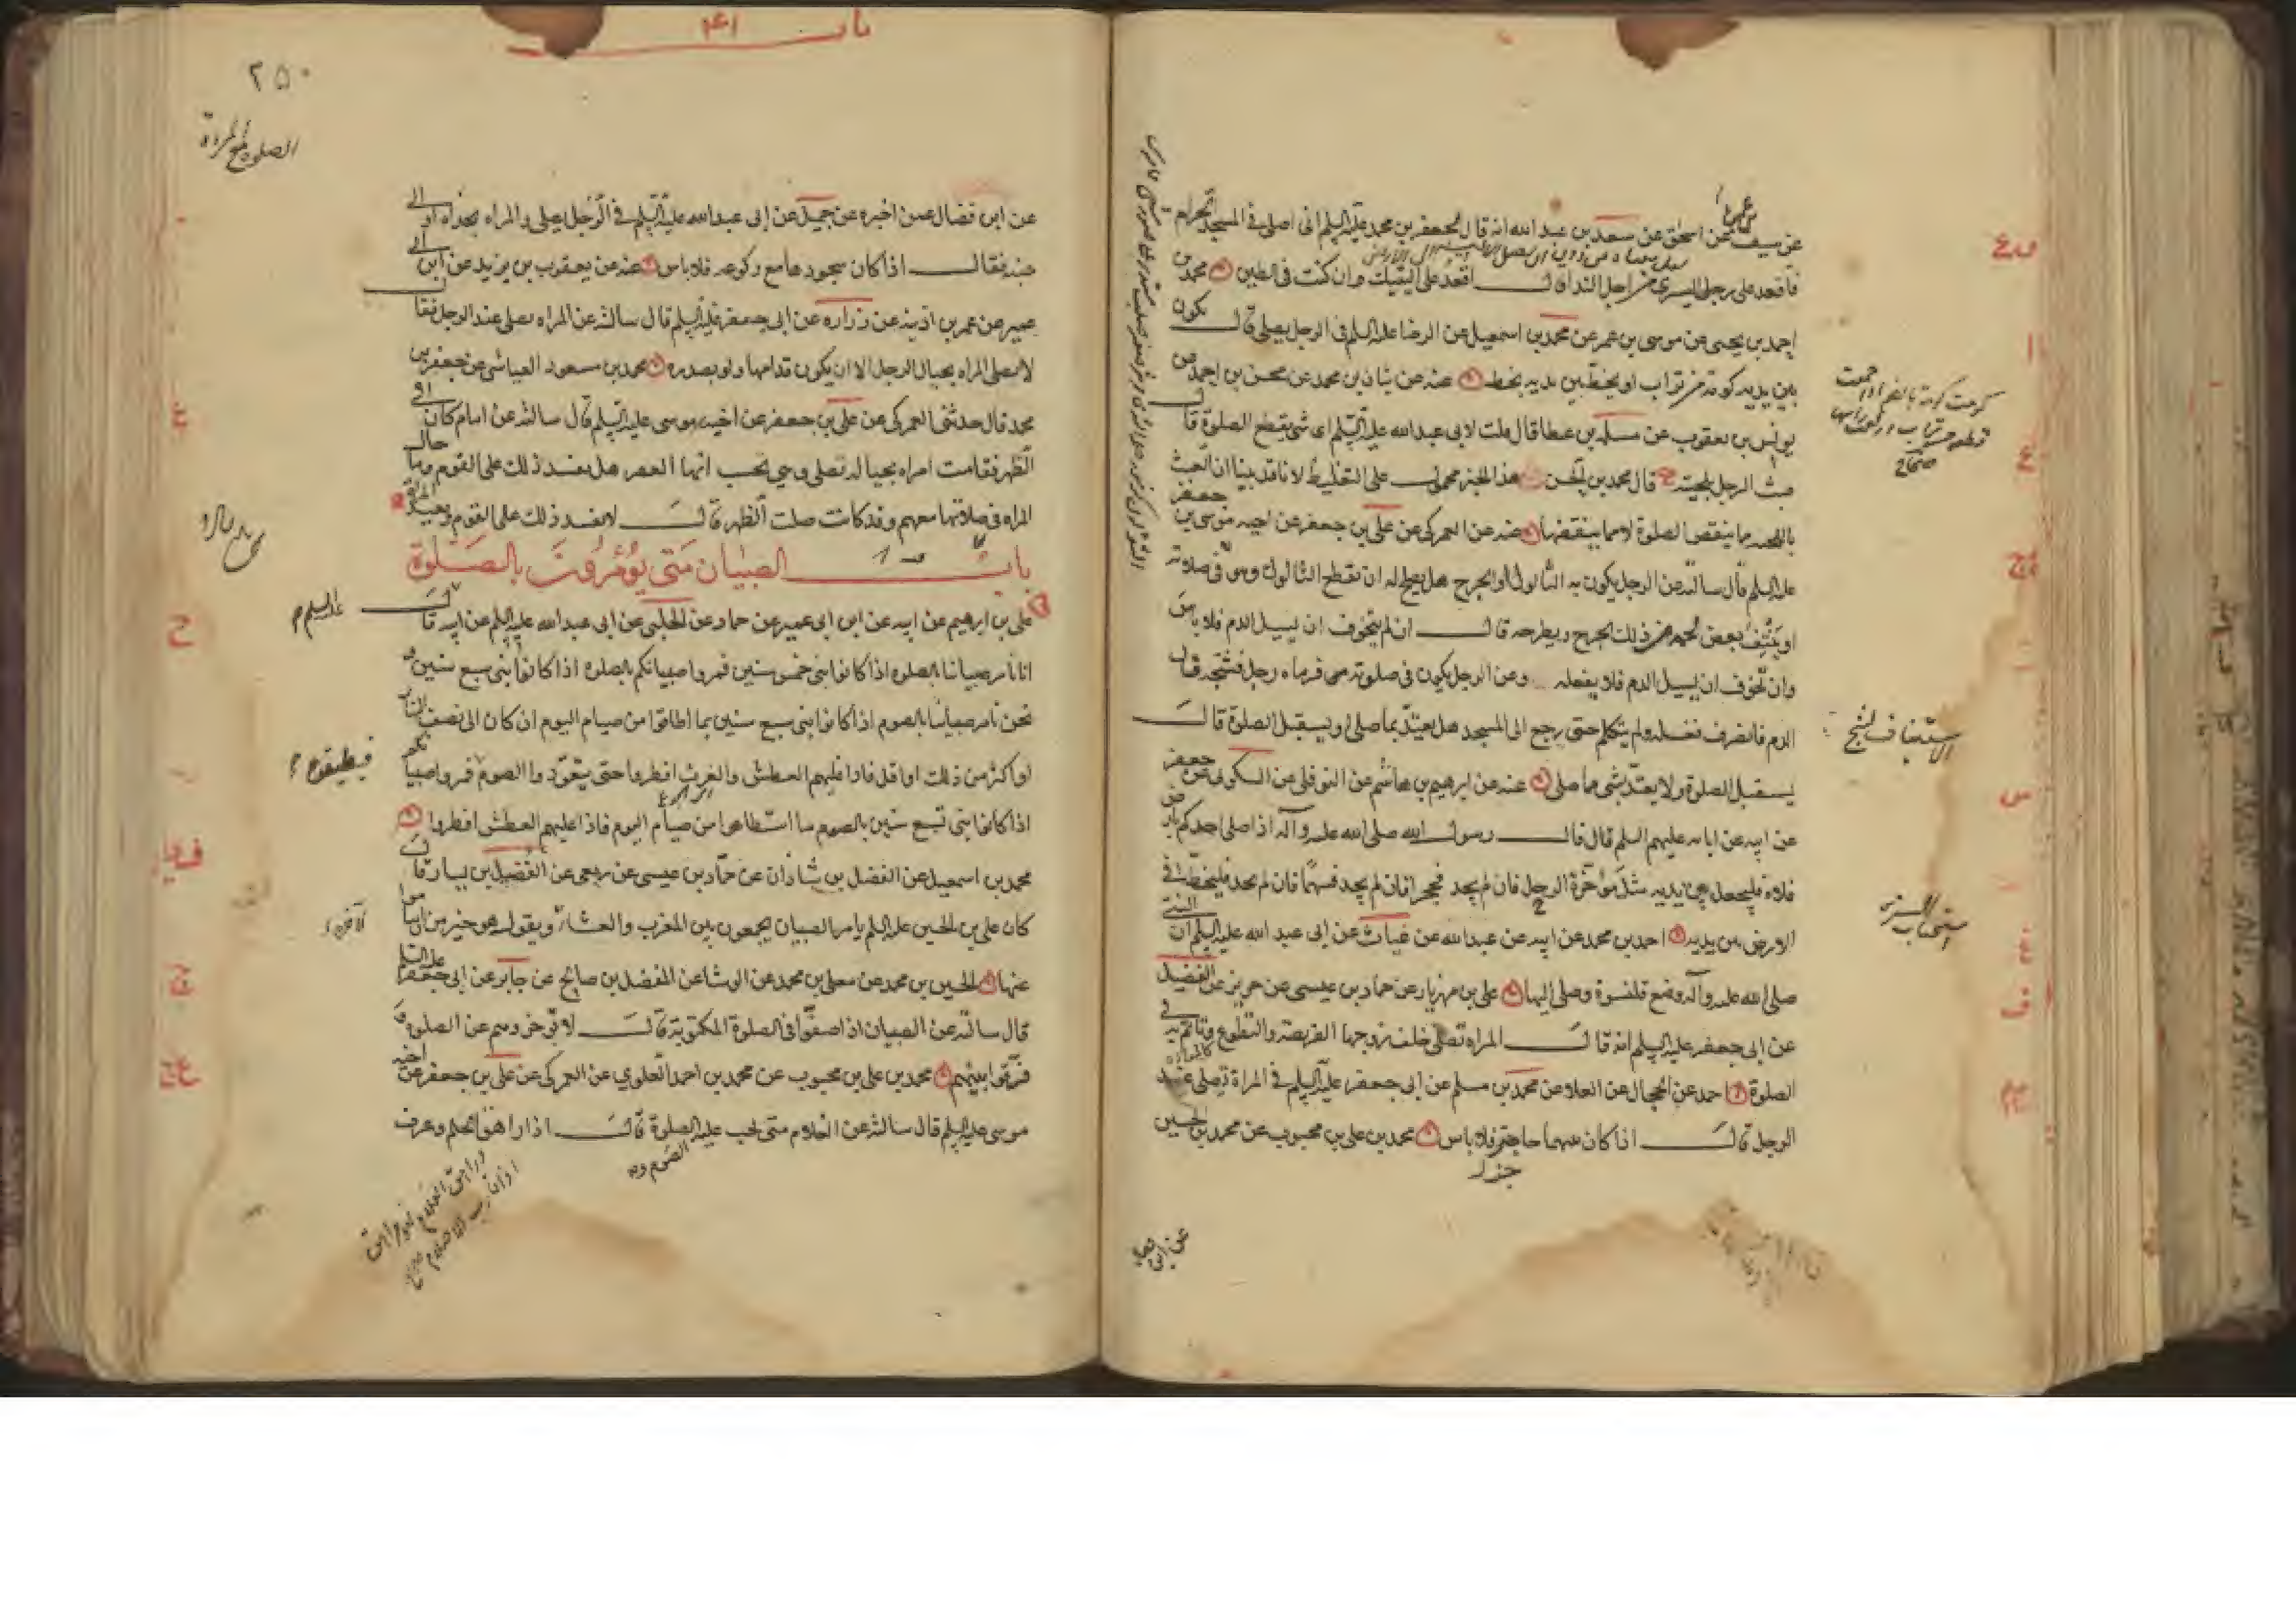 عن سيف عن اسحق عن سعد بن عبد الله انه قال لجعفر بن محمد عليه السلم انى اصلى فى المسجد الحرام
فاقعد على رجلى اليسرى من اجل الندا قال اقعد على اليتيك وان كنت فى الطين محمد بن
احمد بن يحيى عن موسى بن عمر عن محمد بن اسمعيل عن الرضا عليه السلم فى الرجل يصلى قال يكون
بين يديه كومة من تراب او يخط بين يديه بخط عنه عن بنان بن محمد عن محسن بن احمد عن
يونس بن يعقوب عن مسلمة بن عطا قال قلت لابى عبد الله عليه السلم اى شى يقطع الصلوة قال
عبث الرجل بلحيته قال محمد بن الحسن هذا الخبر محمول على التغليظ لانا قد بينا ان العبث
باللحية مما ينقص الصلوة لا مما ينقضها عنه عن العمركى عن على بن جعفر عن اخيه موسى بن جعفر
عليه السلم قال سالته عن الرجل يكون به الثالول او الجرح هل يصلح له ان يقطع الثالول وهو فى صلاته
او ينتف بعض لحمه من ذلك الجرح ويطرحه قال ان لم يتخوف ان يسيل الدم فلا باس
وان تخوف ان يسيل الدم فلا يفعله وعن الرجل يكون فى صلوته فرماه رجل فشجه فسال
الدم فانصرف فغسله ولم يتكلم حتى رجع الى المسجد هل يعتد بما صلى او يستقبل الصلوة قال
يستقبل الصلوة ولا يعتد بشى مما صلى عنه عن ابرهيم بن هاشم عن النوفلى عن السكونى عن جعفر
عن ابيه عن ابائه عليهم السلم قال قال رسول الله صلى الله عليه وآله اذا صلى احدكم بارض
فلاة فليجعل بين يديه مثل مؤخرة الرحل فان لم يجد فحجرا فان لم يجد فسهما فان لم يجد فليخط فى
الارض بين يديه احمد بن محمد عن ابيه عن عبد الله عن غياث عن ابى عبد الله عليه السلم ان النبى
صلى الله عليه وآله وضع قلنسوة وصلى اليها على بن مهزيار عن حماد بن عيسى عن حريز عن الفضيل
عن ابى جعفر عليه السلم انه قال المراه تصلى خلف زوجها الفريضة والتطوع وتاتم به فى
الصلوة احمد عن الحجال عن العلا عن محمد بن مسلم عن ابى جعفر عليه السلم فى المراة تصلى عند
الرجل قال اذا كان بينهما حاجز فلا باس محمد بن على بن محبوب عن محمد بن الحسين
الاستيناف للشج
استحباب السترة
باب ۴۱
۲۵۰
عن ابن فضال عمن اخبره عن جميل عن ابى عبد الله عليه السلم فى الرجل يصلى والمراه بحذاه او الى
جنبه فقال اذا كان سجودها مع ركوعه فلا باس عنه عن يعقوب بن يزيد عن ابن ابى
عمير عن عمر بن اذينه عن زراره عن ابى جعفر عليه السلم قال سالته عن المراه تصلى عند الرجل فقال
لا تصلى المراه بحيال الرجل الا ان يكون قدامها ولو بصدره محمد بن مسعود العياشى عن جعفر بن
محمد قال حدثنى العمركى عن على بن جعفر عن اخيه موسى عليه السلم قال سالته عن امام كان فى
الظهر فقامت امراه بحياله تصلى وهى تحسب انها العصر هل يفسد ذلك على القوم وما حال
المراه فى صلاتها معهم وقد كانت صلت الظهر قال لا يفسد ذلك على القوم وتعيد المراة
باب الصبيان متى يؤمرون بالصلوة
على بن ابرهيم عن ابيه عن ابن ابى عمير عن حماد عن الحلبى عن ابى عبد الله عليه السلم عن ابيه قال
انا نامر صبياننا بالصلوه اذا كانوا بنى خمس سنين فمروا صبيانكم بالصلوه اذا كانوا بنى سبع سنين و
نحن نامر صبياننا بالصوم اذا كانوا بنى سبع سنين بما اطاقوا من صيام اليوم ان كان الى نصف النهار
او اكثر من ذلك او اقل فاذا غلبهم العطش والغرث افطروا حتى يتعودوا الصوم فمروا صبيانكم
اذا كانوا بنى تسع سنين بالصوم ما استطاعوا من صيام اليوم فاذا غلبهم العطش افطروا
محمد بن اسمعيل عن الفضل بن شاذان عن حماد بن عيسى عن ربعى عن الفضيل بن يسار قال
كان على بن الحسين عليه السلم يامر الصبيان يجمعون بين المغرب والعشاء ويقول هو خير من ان يناموا
عنها الحسين بن محمد عن معلى بن محمد عن الوشا عن المفضل بن صالح عن جابر عن ابى جعفر عليه السلم
قال سالته عن الصبيان اذا صفوا فى الصلوة المكتوبة قال لا تؤخروهم عن الصلوة و
فرقوا بينهم محمد بن على بن محبوب عن محمد بن احمد العلوي عن العمركى عن على بن جعفر عن اخيه
موسى عليه السلم قال سالته عن الغلام متى تجب عليه الصلوة قال اذا راهق الحلم وعرف
الصوم
عليه السلم
فيطيقون
الآخرة